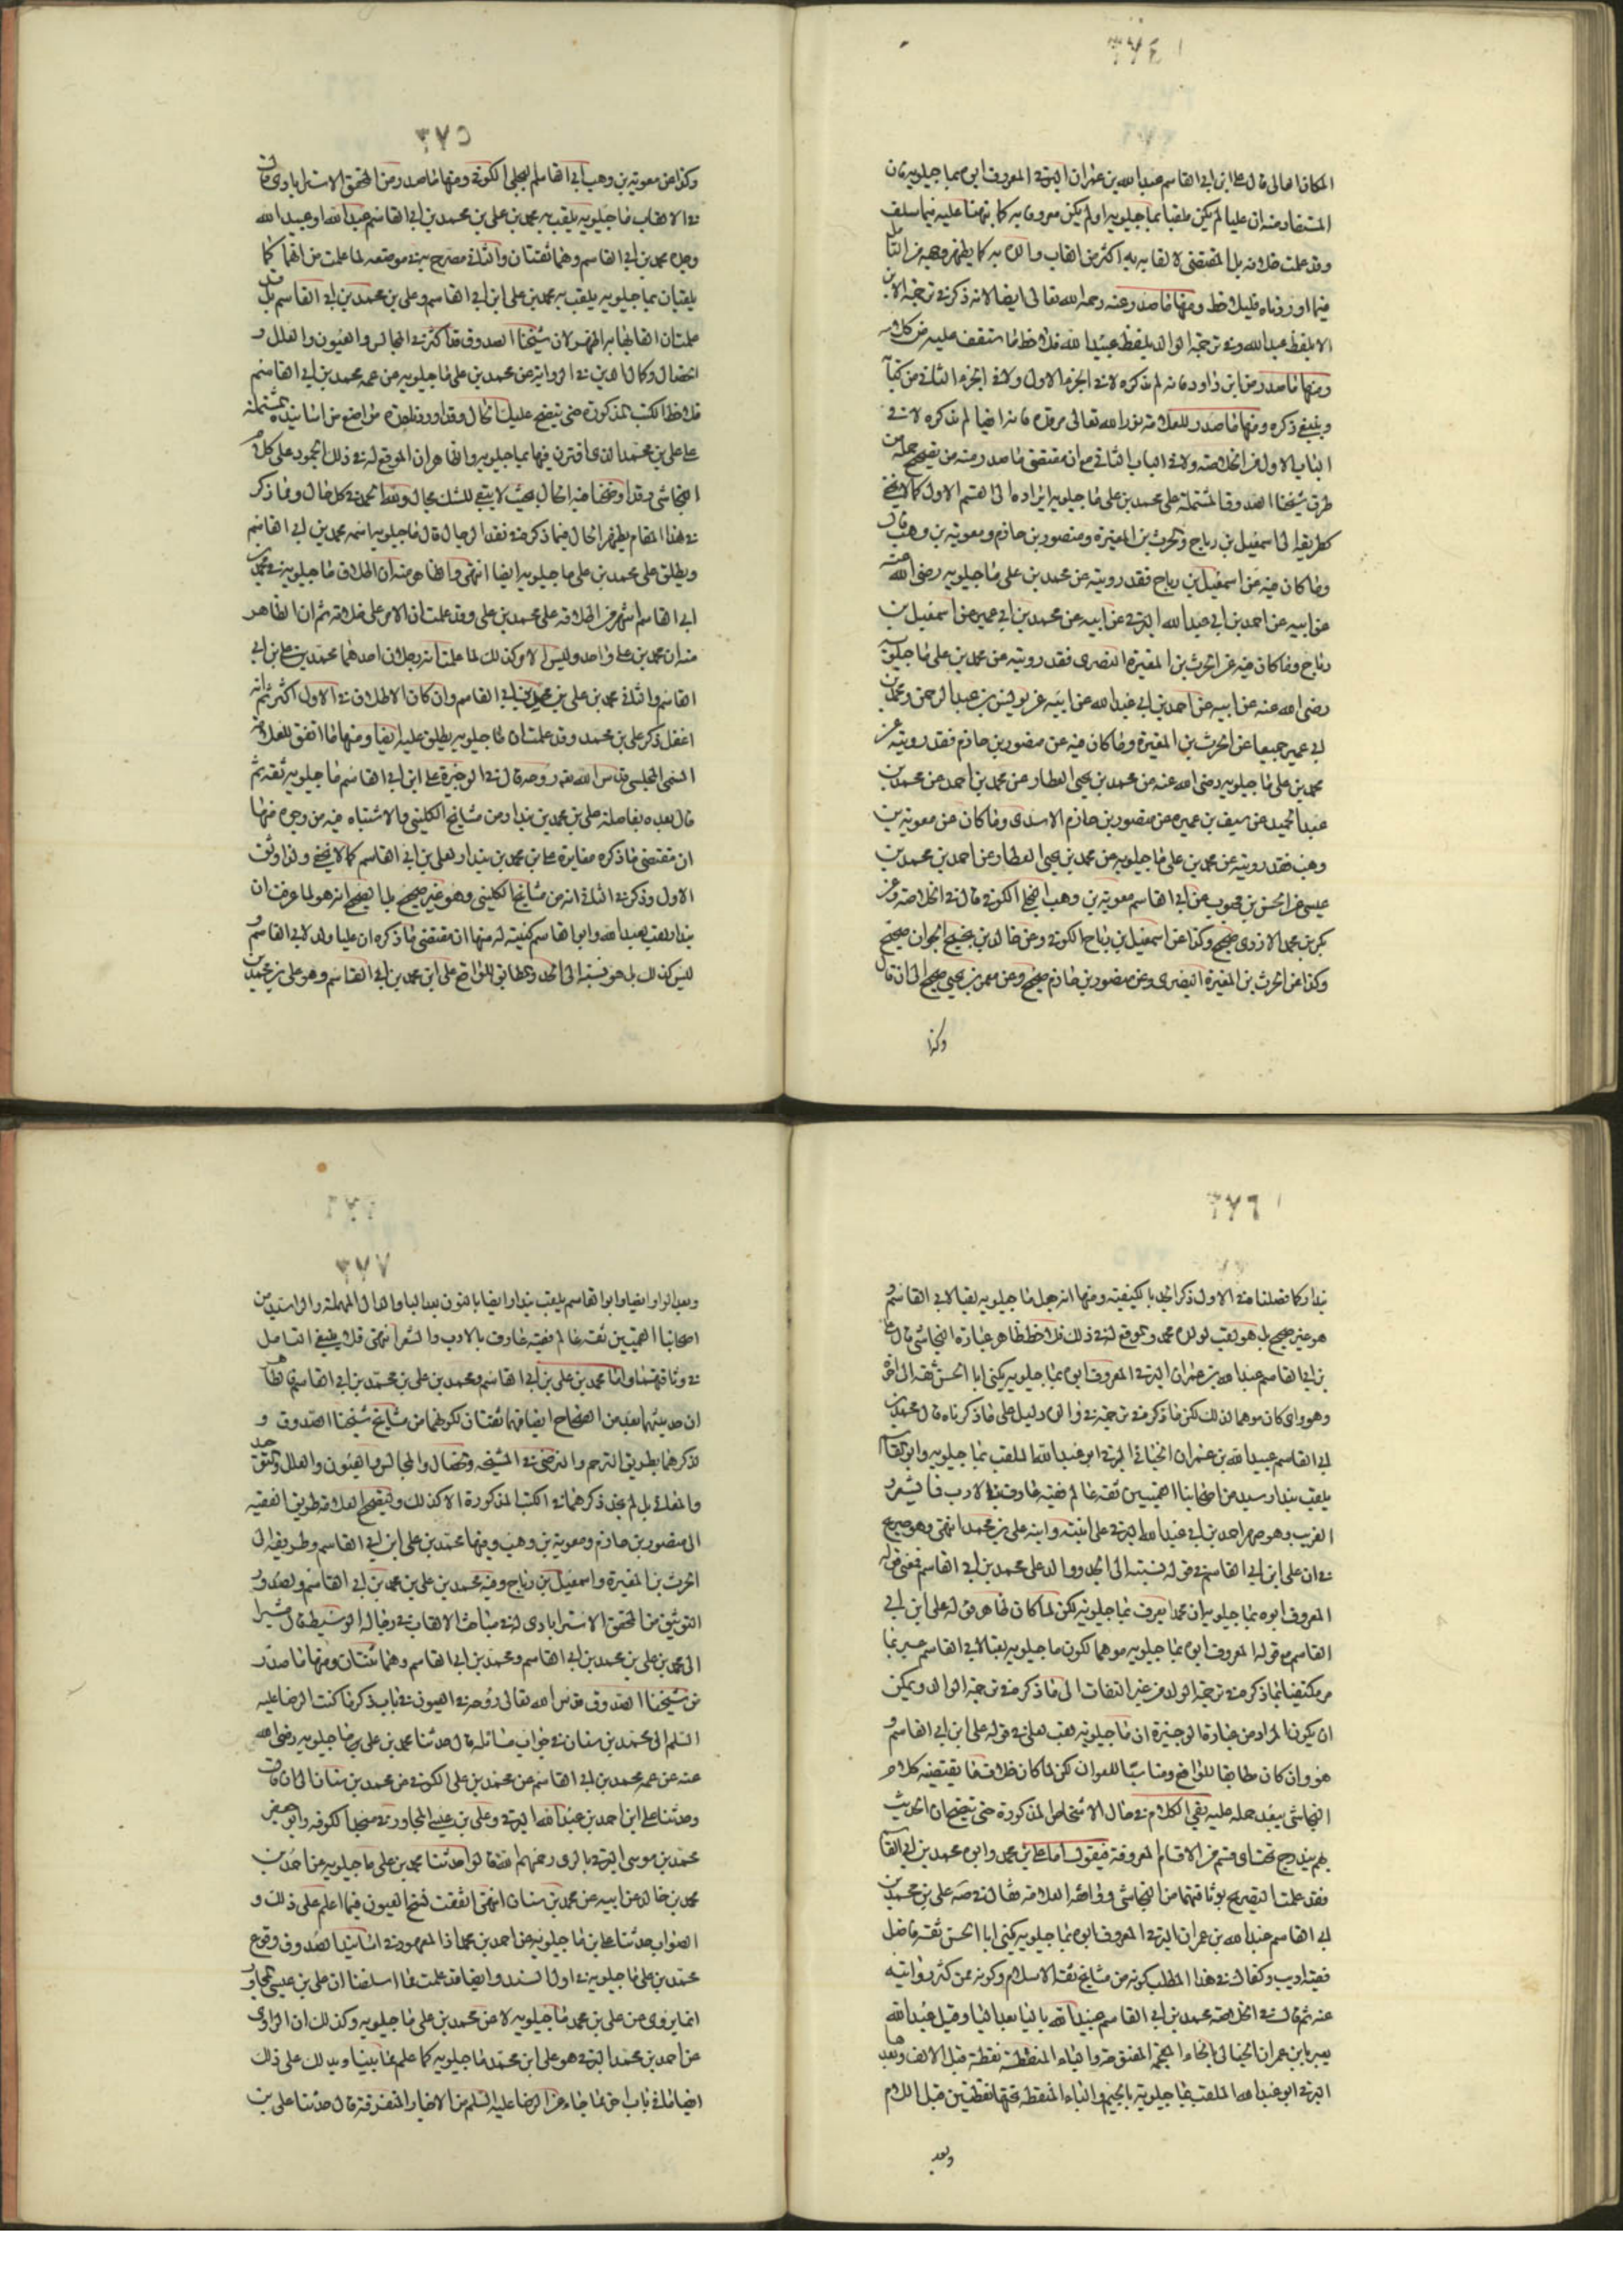 ٣٧٤
المكان العالى قال على ابن ابى القاسم عبدالله بن عمران البرقى المعروف ابوه بماجيلويه فان
المستفاد منه ان عليا لم يكن ملقبا بماجيلويه او لم يكن معروفا به كما نبهنا عليه فيما سلف
وقد علمت خلافه بل المقتضى لالقابه به اكثر من القاب والده به كما يظهر وجهه من التأمل
فيما اوردناه فليلاحظ ومنها ما صدر عنه رحمه الله تعالى ايضا لانه ذكر فى ترجمة الابن
الا بلفظ عبدالله وفى ترجمة الوالد بلفظ عبيدالله فلاحظ ما ستقف عليه من كلامه
ومنها ما صدر من ابن داود فانه لم يذكره لا فى الجزء الاول ولا فى الجزء الثانى من كتابه
وينبغى ذكره ومنها ما صدر للعلامة نور الله تعالى مرقده فانه ايضا لم يذكره لا فى
الباب الاول من الخلاصة ولا فى الباب الثانى مع ان مقتضى ما صدر منه من تصحيح جملة من
طرق شيخنا الصدوق المشتملة على محمد بن على ماجيلويه ايراده فى القسم الاول كما لا يخفى
كطريقه الى اسمعيل بن رباح والحرث بن المغيرة ومنصور بن حازم ومعوية بن وهب قال
وما كان فيه عن اسمعيل بن رباح فقد رويته عن محمد بن على ماجيلويه رضى الله عنه
عن ابيه عن احمد بن ابى عبدالله البرقى عن ابيه عن محمد بن ابى عمير عن اسمعيل بن
رباح وما كان فيه عن الحرث بن المغيرة النصرى فقد رويته عن محمد بن على ماجيلويه
رضى الله عنه عن ابيه عن احمد بن ابى عبدالله عن ابيه عن يونس بن عبدالرحمن ومحمد بن
ابى عمير جميعا عن الحرث بن المغيرة وما كان فيه عن منصور بن حازم فقد رويته عن
محمد بن على ماجيلويه رضى الله عنه عن محمد بن يحيى العطار عن محمد بن احمد عن محمد بن
عبدالحميد عن سيف بن عميره عن منصور بن حازم الاسدى وما كان عن معوية بن
وهب فقد رويته عن محمد بن على ماجيلويه عن محمد بن يحيى العطار عن احمد بن محمد بن
عيسى عن الحسن بن محبوب عن ابى القاسم معوية بن وهب البجلى الكوفى قال فى الخلاصة وعن
بكر بن محمد الازدى صحيح وكذا عن اسمعيل بن رباح الكوفى وعن خالد بن نجيح الجوان صحيح
وكذا عن الحرث بن المغيرة النصرى وعن منصور بن حازم صحيح وعن معمر بن يحيى صحيح الى ان قال
وكذا
٣٧٥
وكذا عن معوية بن وهب ابى القاسم البجلى الكوفى ومنها ما صدر من المحقق الاسترابادى قال
فى الالقاب ماجيلويه يلقب به محمد بن على بن محمد بن ابى القاسم عبدالله او عبيدالله
وجده محمد بن ابى القاسم وهما ثقتان والثانى مصرح به فى موضعه لما علمت من انهما كما
يلقبان بماجيلويه يلقب به محمد بن على ابن ابى القاسم وعلى بن محمد بن ابى القاسم بل قد
علمت ان القابهما به اظهر لان شيخنا الصدوق قد اكثر فى المجالس والعيون والعلل و
الخصال وكمال الدين فى الرواية عن محمد بن على ماجيلويه عن عمه محمد بن ابى القاسم
فلاحظ الكتب المذكورة حتى يتضح عليك الحال وقد اورد فى مواضع من اسانيده المشتملة
على على بن محمد الذى اقترن فيها بماجيلويه والظاهر ان الموقع له فى ذلك الجمود على كلام
النجاشى وقد اوضحنا فيه الحال بحيث لا يبقى للشك مجال ولله الحمد فى كل حال وما ذكر
فى هذا المقام يظهر الحال فيما ذكر فى نقد الرجال قال ماجيلويه اسمه محمد بن ابى القاسم
ويطلق على محمد بن على ماجيلويه ايضا انتهى والظاهر منه ان اطلاق ماجيلويه فى محمد بن
ابى القاسم اشهر من اطلاقه على محمد بن على وقد علمت ان الامر على خلافه ثم ان الظاهر
منه ان محمد بن على واحد وليس الامر كذلك لما علمت انه رجلان احدهما محمد بن على بن ابى
القاسم والثانى محمد بن على بن محمد بن ابى القاسم وان كان الاطلاق فى الاول اكثر ثم انه
اغفل ذكر على بن محمد وقد علمت ان ماجيلويه يطلق عليه ايضا ومنها ما اتفق للعلامة
السمى المجلسى قدس الله روحه قال فى الوجيزة على ابن ابى القاسم ماجيلويه ثقة ثم
قال بعده بفاصلة على بن محمد بن بندار من مشايخ الكلينى والاشتباه فيه من وجوه منها
ان مقتضى ما ذكره مغايرة على بن محمد بن بندار لعلى بن ابى القاسم كما لا يخفى ولذا وثق
الاول وذكر فى الثانى انه من مشايخ الكلينى وهو غير صحيح بل الصحيح انه هو لما عرفت ان
بندار لقب لعبدالله وابو القاسم كنيته له منها ان مقتضى ما ذكره ان عليا ولد لابى القاسم و
ليس كذلك بل هو نسبة الى الجد والمطابق للواقع على ابن محمد بن ابى القاسم وهو على بن محمد بن
٣٧٦
بندار كما فصلنا فى الاول ذكر الجد بالكنية ومنها انه جعل ماجيلويه لقبا لابى القاسم و
هو غير صحيح بل هو لقب لولده محمد والموقع له فى ذلك فلاحظ ظاهر عبارة النجاشى قال على
بن ابى القاسم عبدالله بن عمران البرقى المعروف ابوه بماجيلويه يكنى ابا الحسن ثقة الى اخره
وهو وان كان موهما لذلك لكن ما ذكر فى ترجمة والده دليل على ما ذكرناه قال محمد بن
ابى القاسم عبيدالله بن عمران الجنابى البرقى ابو عبدالله الملقب بماجيلويه وابو القاسم
يلقب بندار سيد من اصحابنا القميين ثقة عالم فقيه عارف بالادب والشعر و
الغريب وهو صهر احمد بن ابى عبدالله البرقى على ابنته وابنه على بن محمد انتهى وهو صريح
فى ان على ابن ابى القاسم فى قوله نسبته الى الجد ووالد على محمد بن ابى القاسم فمعنى قوله
المعروف ابوه بماجيلويه ان محمدا يعرف بماجيلويه لكن لما كان ظاهر قوله على ابن ابى
القاسم مع قوله المعروف ابوه بماجيلويه موهما لكون ماجيلويه لقبا لابى القاسم عبر بما
مر مكتفيا بما ذكر فى ترجمة الولد من غير التفات الى ما ذكر فى ترجمة الوالد ويمكن
ان يكون المراد من عبارة الوجيزة ان ماجيلويه لقب لعلى فى قوله على ابن ابى القاسم و
هو وان كان مطابقا للواقع ومناسبا للعنوان لكن لما كان خلاف ما يقتضيه كلام
النجاشى يبعد حمله عليه بقى الكلام فى حال الاشخاص المذكورة حتى يتضح ان الحديث
بهم يندرج تحت اى قسم من الاقسام المعروفة فيقول اما على بن محمد وابوه محمد بن ابى القاسم
فقد علمت التصريح بوثاقتهما من النجاشى ووافقه العلامة فقال فى صه على بن محمد بن
ابى القاسم عبدالله بن عمران البرقى المعروف ابوه بماجيلويه يكنى ابا الحسن ثقة فاضل
فقيه اديب وكفاك فى هذا المطلب كونه من مشايخ ثقة الاسلام وكونه ممن كثر رواايته
عنه ثم قال فى الخلاصة محمد بن ابى القاسم عبيدالله بالياء بعد الباء وقيل عبدالله
بغير ياء بن عمران الجنابى بالخاء المعجمة المفتوحة والباء المنقطة نقطة قبل الالف وبعدها
البرقى ابو عبدالله الملقب بماجيلويه بالجيم والياء المنقطة تحتها نقطتين قبل اللام
وبعد
٣٧٧
وبعد الواو ايضا وابو القاسم يلقب بندار ايضا بالنون بعد الباء والدال المهملة والراء سيد من
اصحابنا القميين ثقة عالم فقيه عارف بالادب والشعر انتهى فلا ينبغى التامل
فى وثاقتهما واما محمد بن على بن ابى القاسم ومحمد بن على بن محمد بن ابى القاسم فالظاهر
ان حديثهما يعد من الصحاح ايضا فهما ثقتان لكونهما من مشايخ شيخنا الصدوق و
ذكرهما بطريق الترحم والترضى فى المشيخة والخصال والمجالس والعيون والعلل والتوحيد
والمعانى بل لم يجئ ذكرهما فى الكتب المذكورة الا كذلك ولتصحيح العلامة طريق الفقيه
الى منصور بن حازم ومعوية بن وهب وفيها محمد بن على ابن ابى القاسم وطريقه الى
الحرث بن المغيرة واسمعيل بن رباح وفيه محمد بن على بن محمد بن ابى القاسم ولصدور
التوثيق من المحقق الاسترابادى له فى مباحث الالقاب فى رجاله الوسيط قال مشيرا
الى محمد بن على بن محمد بن ابى القاسم ومحمد بن ابى القاسم وهما ثقتان ومنها ما صدر
من شيخنا الصدوق قدس الله تعالى روحه فى العيون فى باب ذكر ما كتب الرضا عليه
السلم الى محمد بن سنان فى جواب مسائله قال حدثنا محمد بن على ماجيلويه رضى الله
عنه عن عمه محمد بن ابى القاسم عن محمد بن على الكوفى عن محمد بن سنان الى ان قال
وحدثنا على ابن احمد بن عبدالله البرقى وعلى بن عيسى المجاور فى مسجد الكوفه وابو جعفر
محمد بن موسى البرقى بالرى رحمهم الله قالوا حدثنا محمد بن على ماجيلويه عن احمد بن
محمد بن خالد عن ابيه عن محمد بن سنان انتهى اتفقت نسخ العيون فيما اعلم على ذلك و
الصواب حدثنا على بن ماجيلويه عن احمد بن محمد اذ المعهود فى اسانيد الصدوق وقوع
محمد بن على ماجيلويه فى اول السند وايضا قد علمت مما اسلفنا ان على بن عيسى المجاور
انما يروى عن على بن محمد ماجيلويه لا عن محمد بن على ماجيلويه وكذلك ان الراوى
عن احمد بن محمد البرقى هو على ابن محمد ماجيلويه كما علم مما بينا ويدلك على ذلك
ايضا ما فى باب اخر مما جاء عن الرضا عليه السلم من الاخبار المتفرقة قال حدثنا على بن